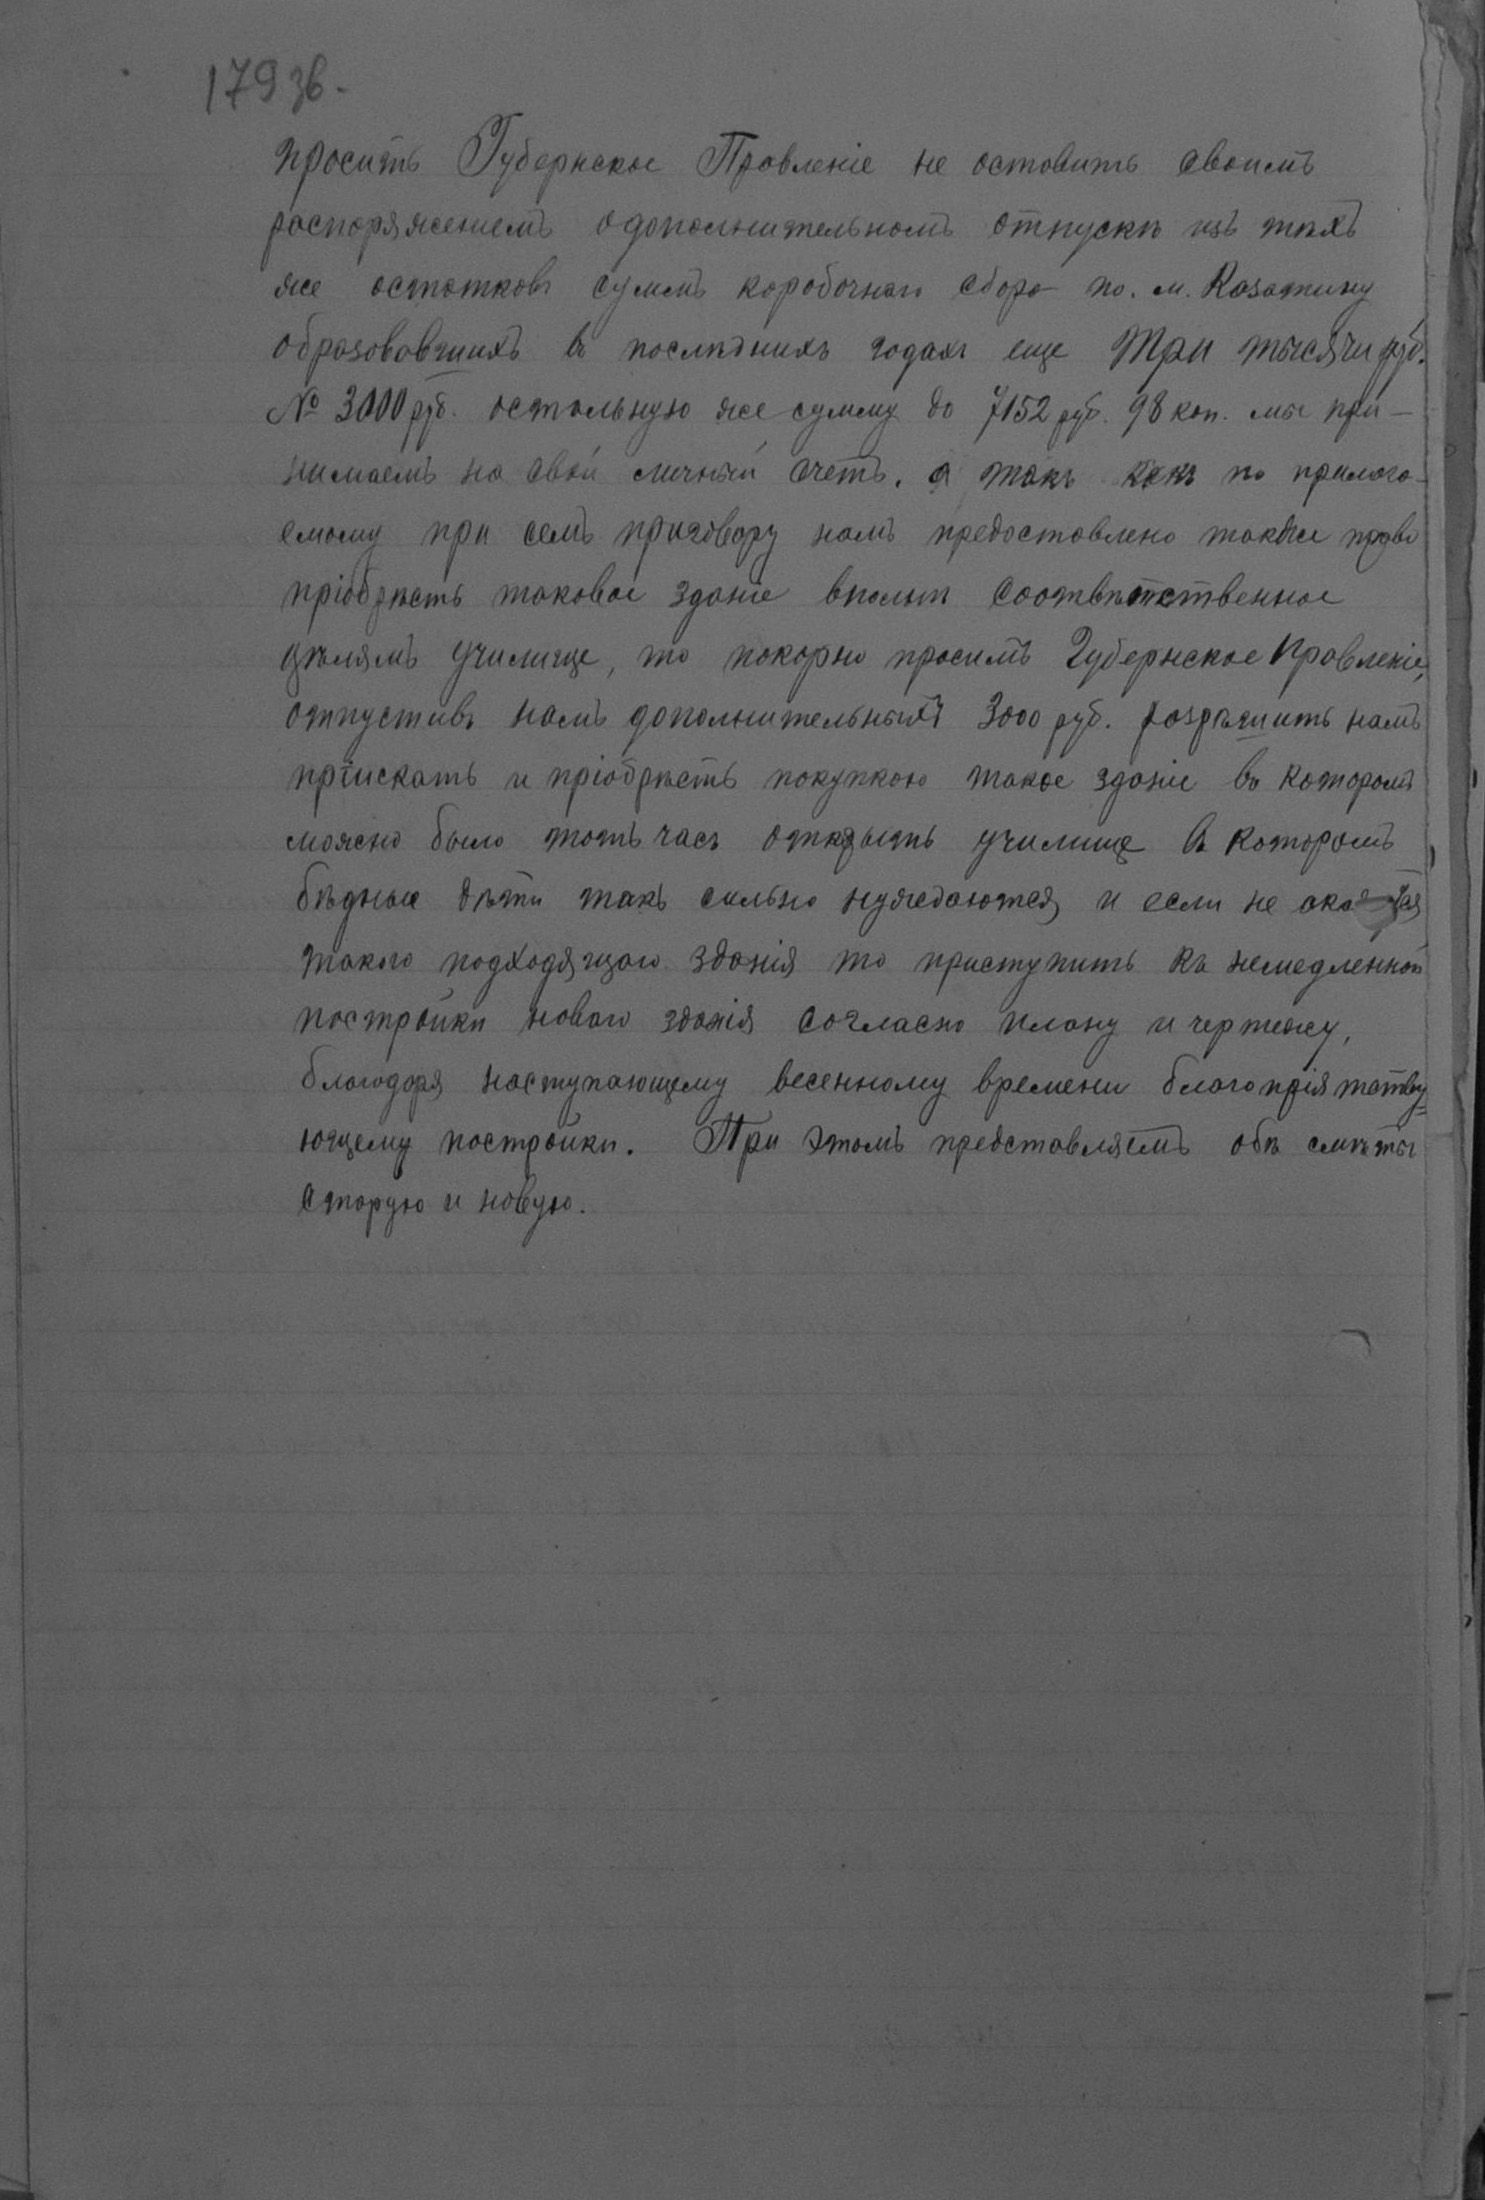 179 зв.
просить Губернское Правленіе не оставить своимъ
распоряженіемъ о дополнительномъ отпускѣ изъ тѣхъ
же остатковъ суммъ коробочнаго сбора по. м. Казатину
образовавшихъ въ послѣднихъ годахъ еще Три тысячи руб.
№ 3000 руб. остальную же сумму до 7152 руб. 98 коп. мы при-
нимаемъ на свой личный счетъ. а такъ какъ по прилага-
емому при семъ приговору намъ предоставлено также право
пріобрѣсть таковое зданіе вполнѣ соотвѣтственное
цѣлямъ училище, то покорно просимъ Губернское Правленіе,
отпустивъ намъ дополнительныхъ 3000 руб. разрѣшить намъ
пріискать и пріобрѣсть покупкою такое зданіе въ которомъ
можно было тотъ часъ открыть училище въ которомъ
бѣдные дѣти такъ сильно нуждаются, и если не
такого подходящаго зданія то приступить къ немедленной
постройки новаго зданія согласно плану и чертежу,
благодаря наступающему весенному времени благопріятству=
ющему постройки. При этомъ представляемъ обѣ смѣты
старую и новую.